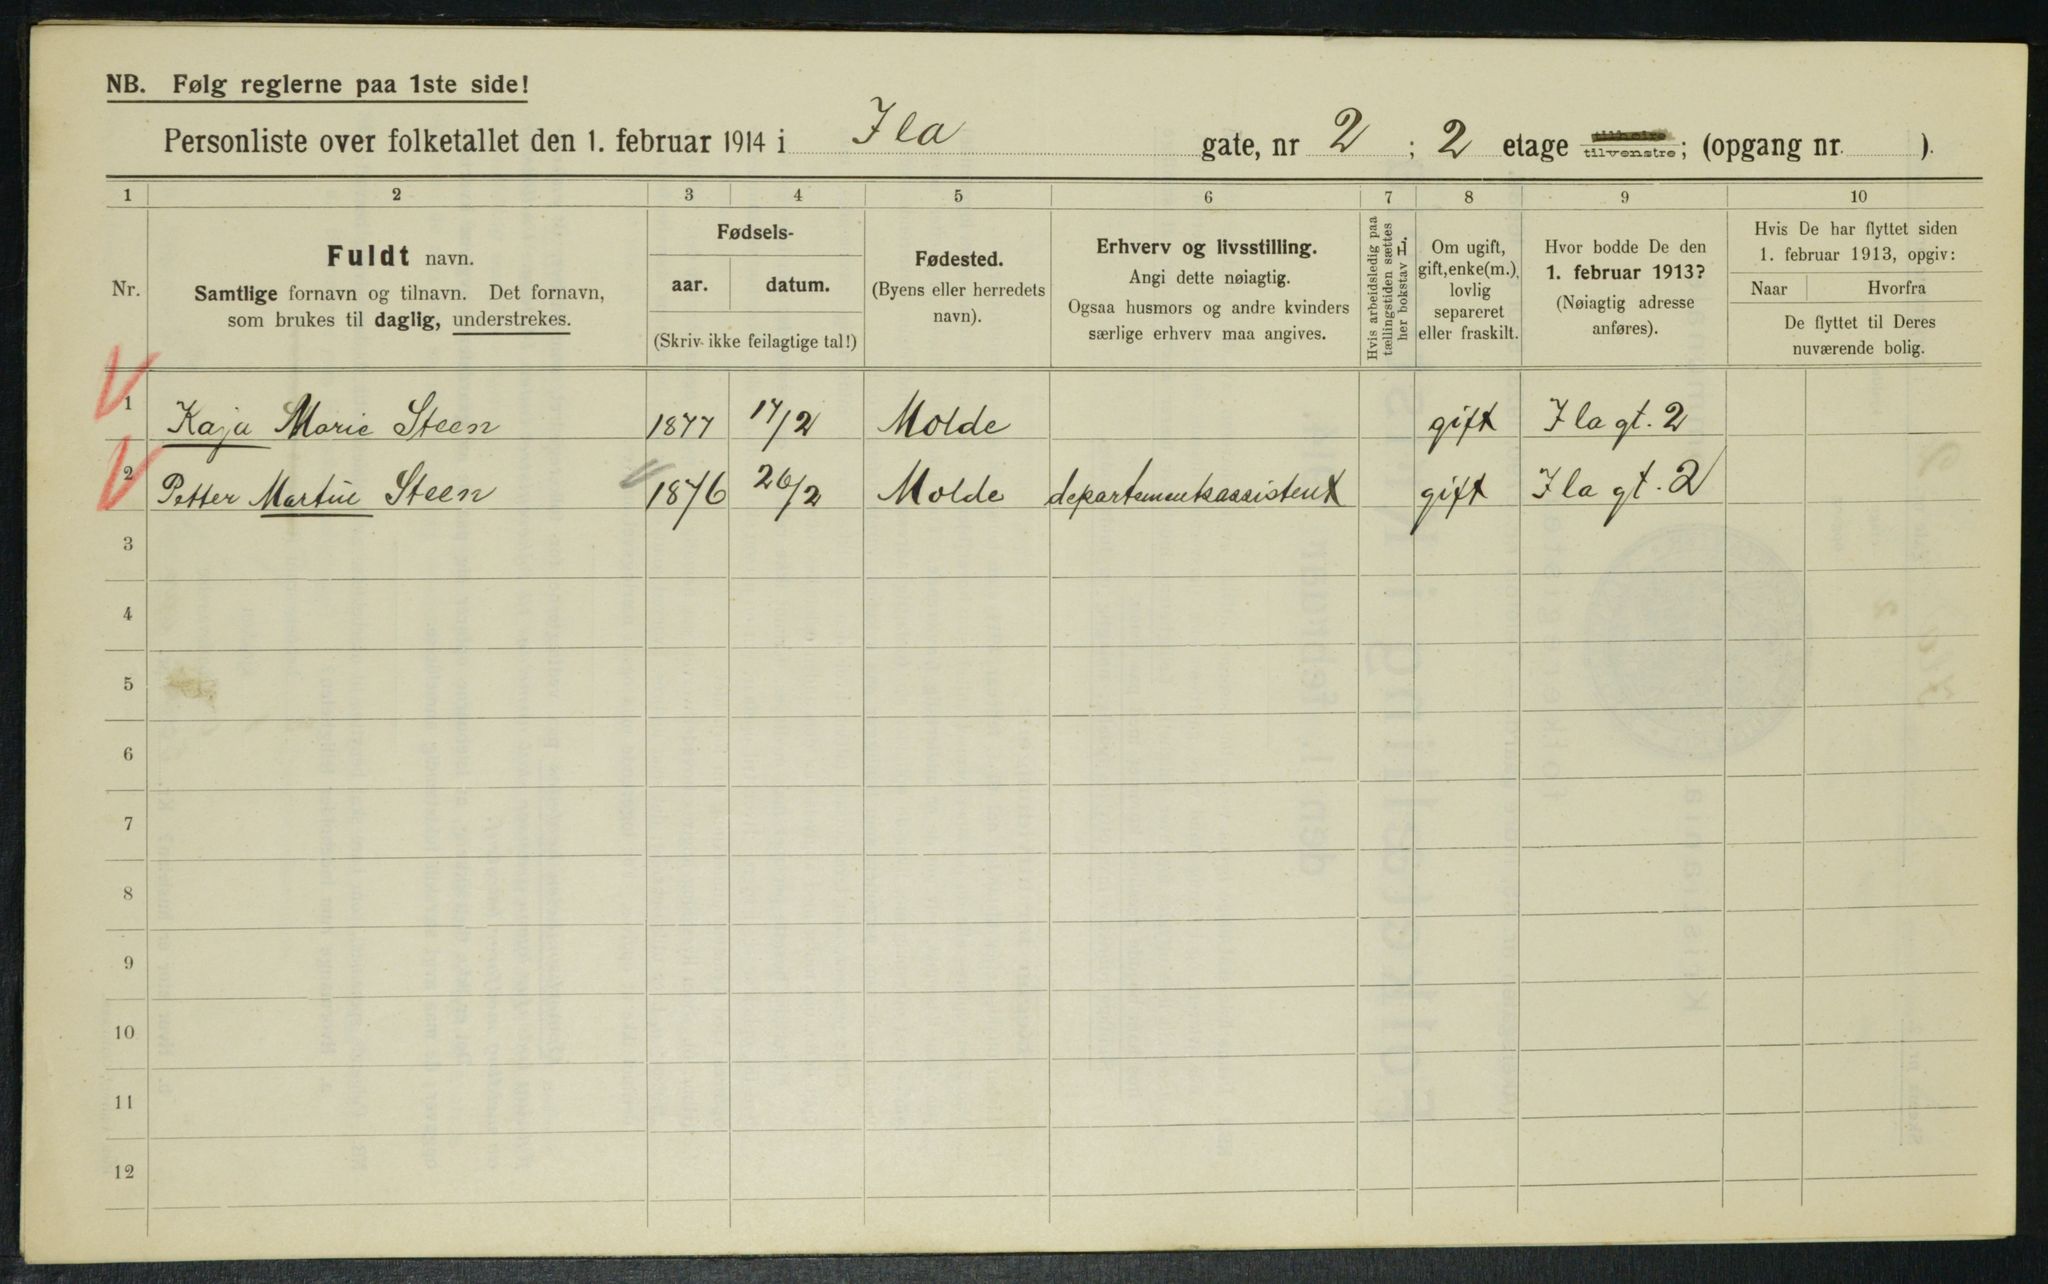 NB. Følg reglerne paa 1ste side!
Personliste over folketallet den 1. februar 1914 i Ila gate, nr 2; 2 etage tilhøire tilvenstre; (opgang nr. ).
1 2 3 4 5 6 7 8 9 10
Nr.
Fuldt navn.
Samtlige fornavn og tilnavn. Det fornavn,
som brukes til daglig, understrekes.
Fødsels-
aar. datum.
(Skriv ikke feilagtige tal!)
Fødested.
(Byens eller herredets
navn).
Erhverv og livsstilling.
Angi dette nøiagtig.
Ogsaa husmors og andre kvinders
særlige erhverv maa angives.
Hvis arbeidsledig paa
tællingstiden sættes
her bokstav L.
Om ugift,
gift, enke(m.),
lovlig
separeret
eller fraskilt.
Hvor bodde De den
1. februar 1913?
(Nøiagtig adresse
anføres).
Hvis De har flyttet siden
1. februar 1913, opgiv:
Naar Hvorfra
De flyttet til Deres
nuværende bolig.
1 Kaja Marie Steen 1877 17/2 Molde gift Ila gt. 2
2 Petter Martin Steen 1876 26/2 Molde departementsassistent gift Ila gt. 2
3
4
5
6
7
8
9
10
11
12